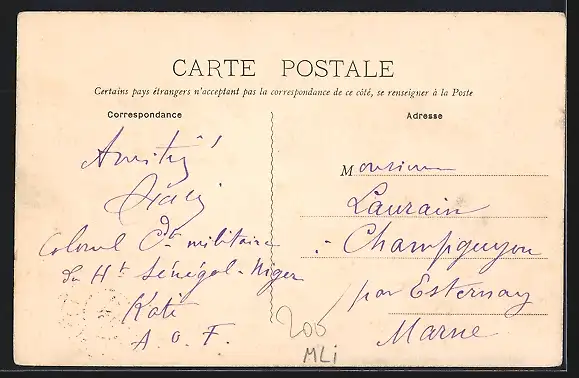 CARTE POSTALE
Certains pays étrangers n'acceptant pas la correspondance de ce côté, se renseigner à la Poste
Correspondance
Adresse
Amitiés
Colonel Cdt militaire
du Ht Sénégal-Niger
Kati
A. O. F.
Monsieur
Laurain
Champguyon
par Esternay
Marne
200
MLi